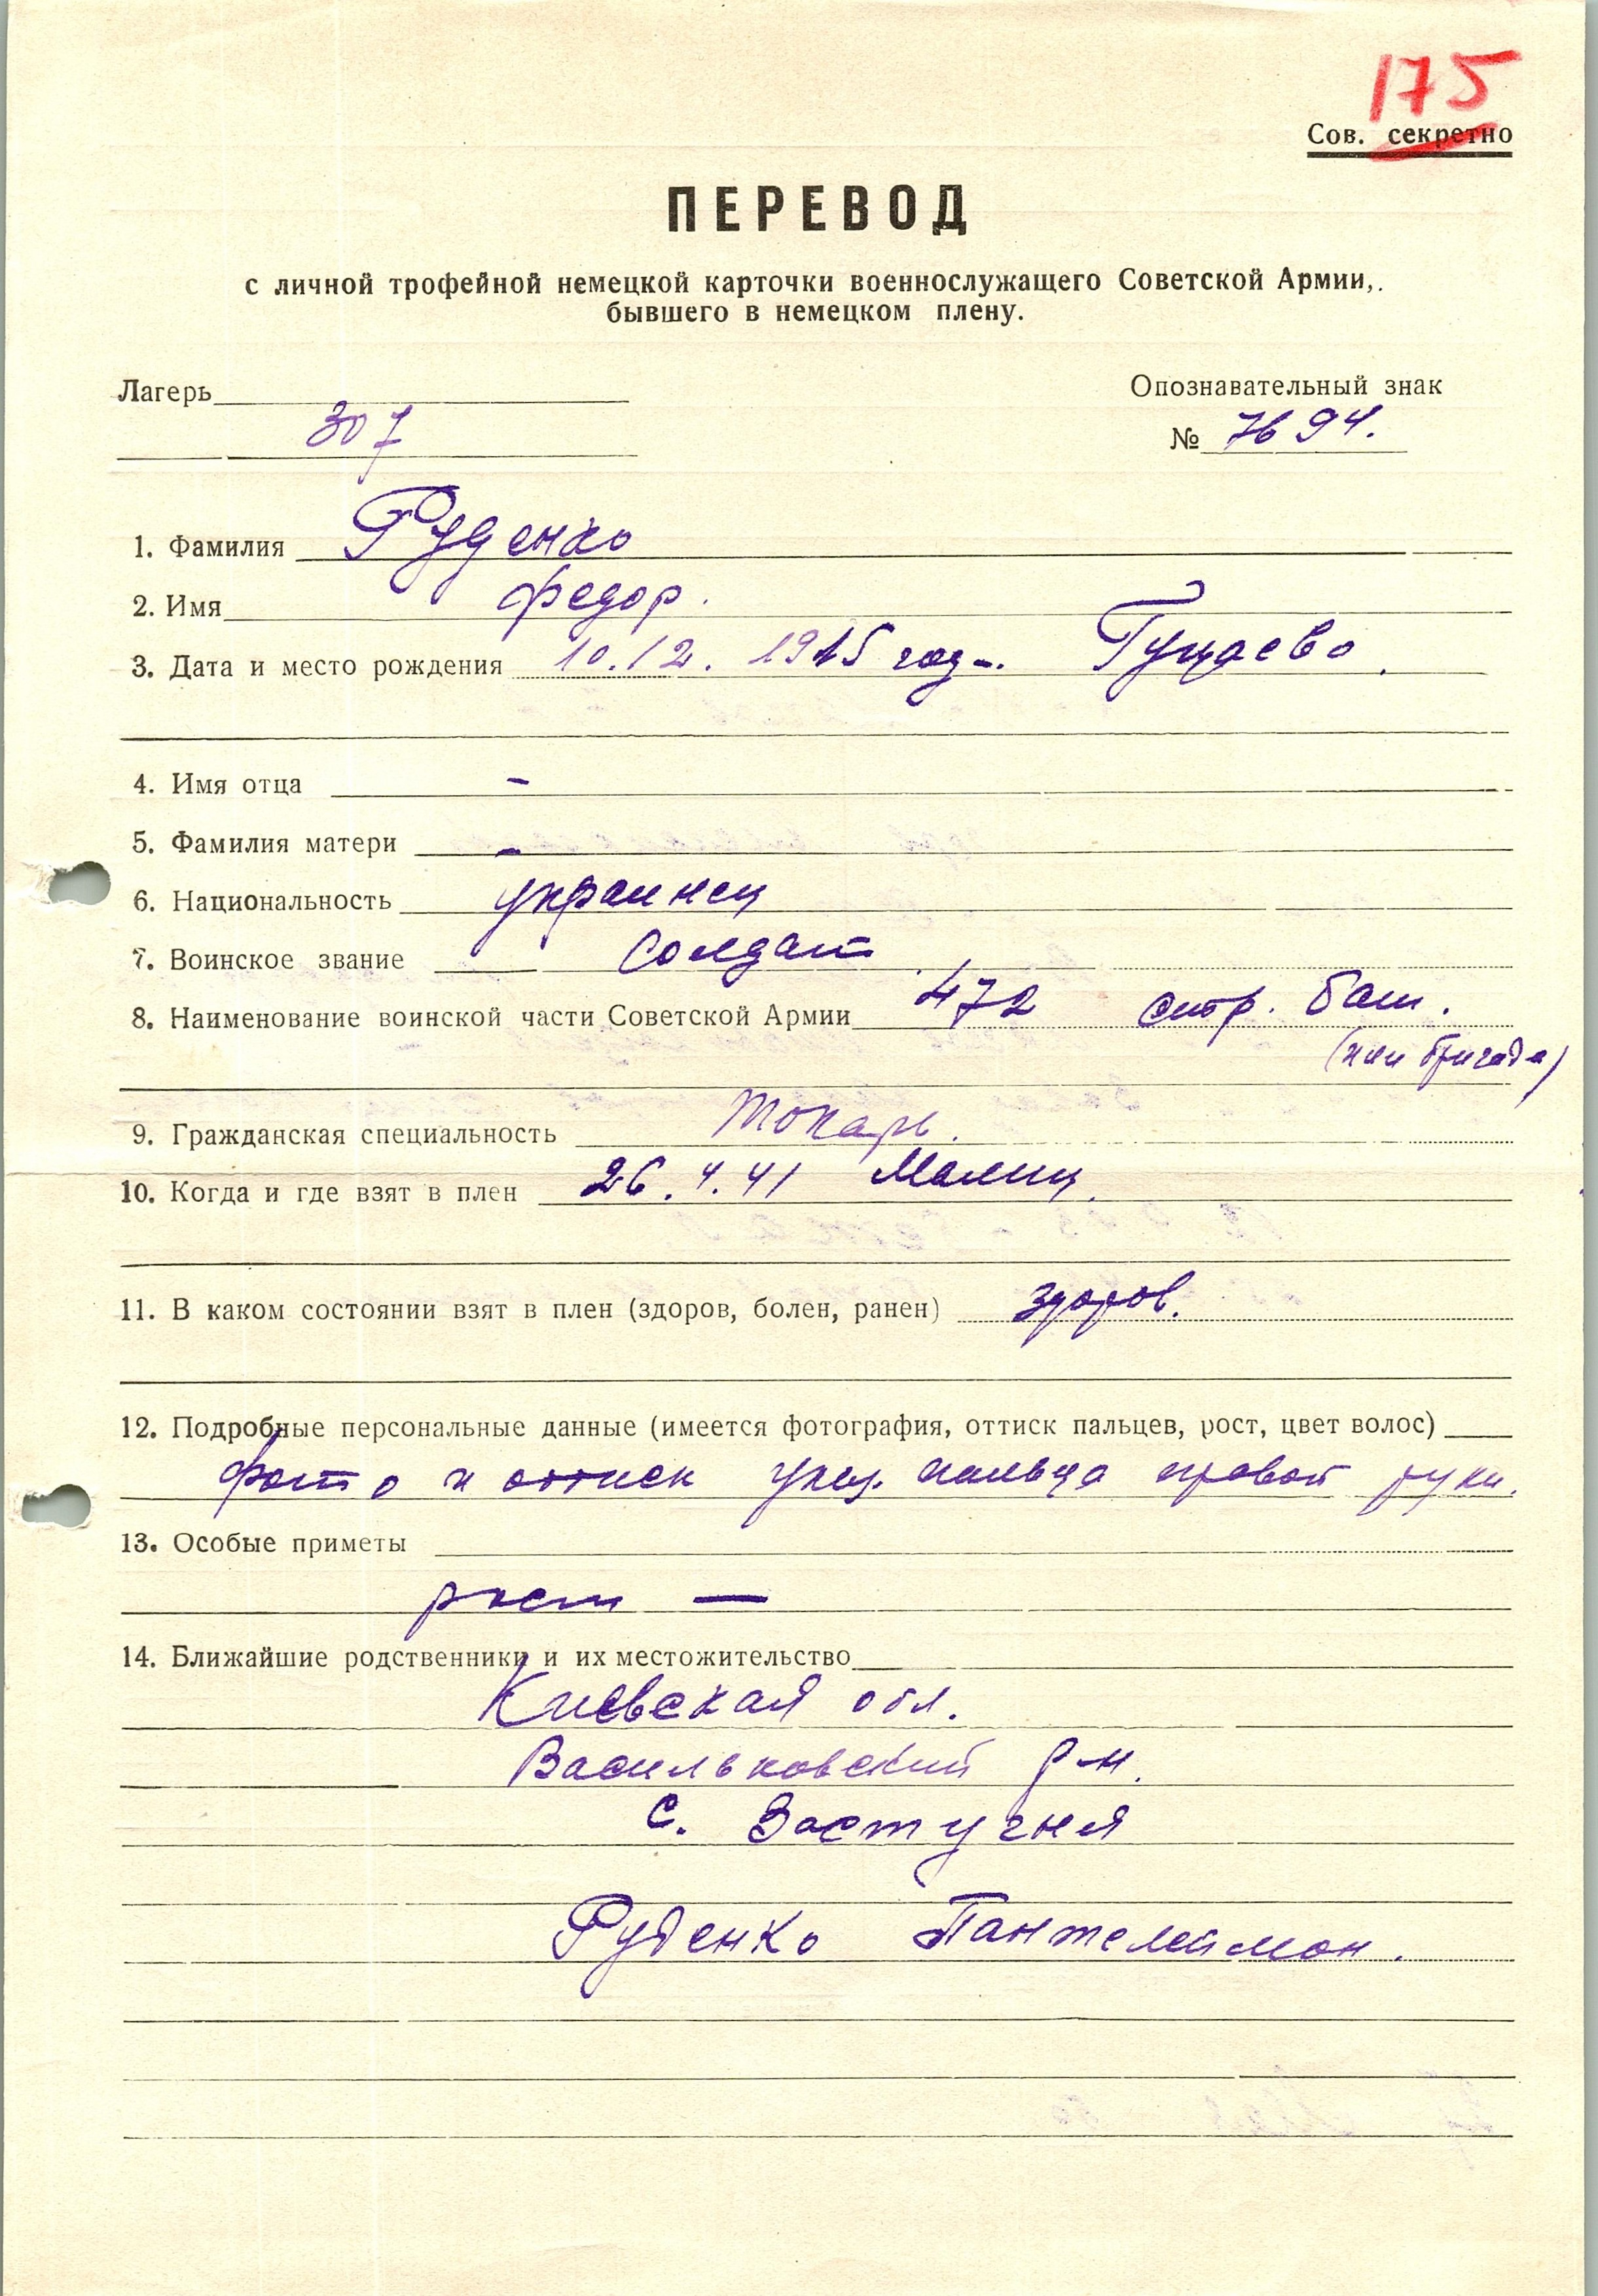 175
Сов. секретно
ПЕРЕВОД
с личной трофейной немецкой карточки военнослужащего Советской Армии,
бывшего в немецком плену.
Лагерь
Опознавательный знак
307
№ 7694.
1. Фамилия Руденко
2. Имя Федор.
3. Дата и место рождения 10.12. 1915 год.
4. Имя отца –
5. Фамилия матери –
6. Национальность украинец
7. Воинское звание солдат
8. Наименование воинской части Советской Армии 472 стр. бат.
(или бригада)
9. Гражданская специальность токарь.
10. Когда и где взят в плен 26.4.41 Малин.
11. В каком состоянии взят в плен (здоров, болен, ранен) здоров.
12. Подробные персональные данные (имеется фотография, оттиск пальцев, рост, цвет волос)
фото и оттиск указ. пальца правой руки.
13. Особые приметы
рост —
14. Ближайшие родственники и их местожительство
Киевская обл.
Васильковский р-н.
с. Застугня
Руденко Пантелеймон.